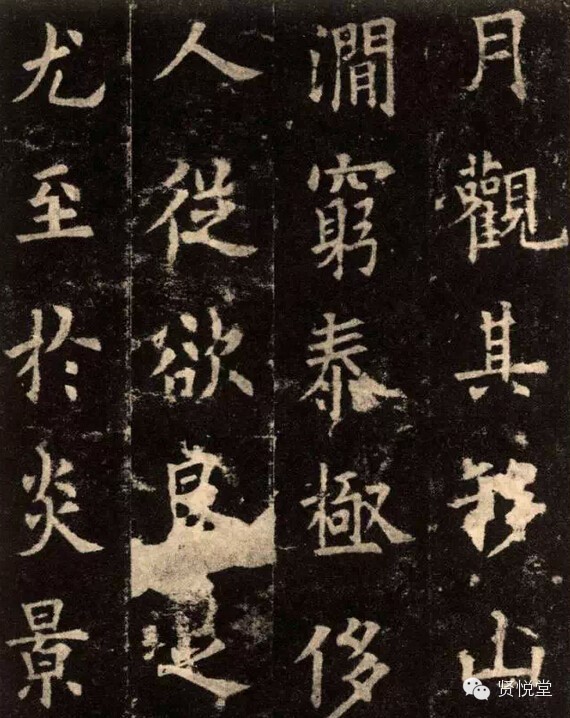 月觀其移山
澗窮泰極侈
人從欲良足
尤至於炎景
贤悦堂